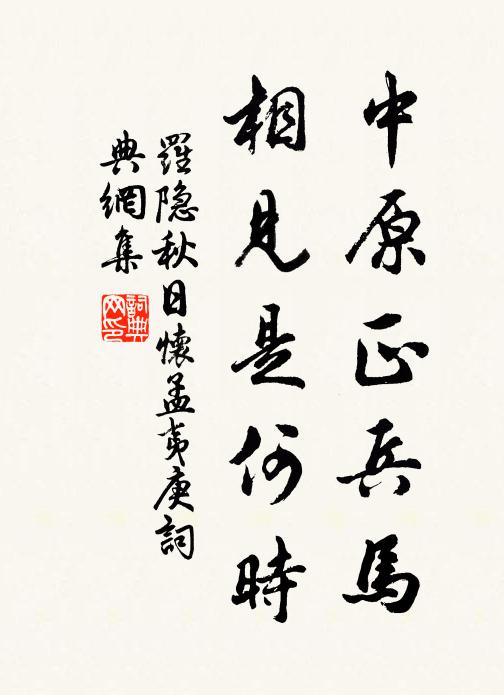 中原正兵馬
相見是何時
羅隐秋日懷孟夷庚詞
典網集
詞典
网印